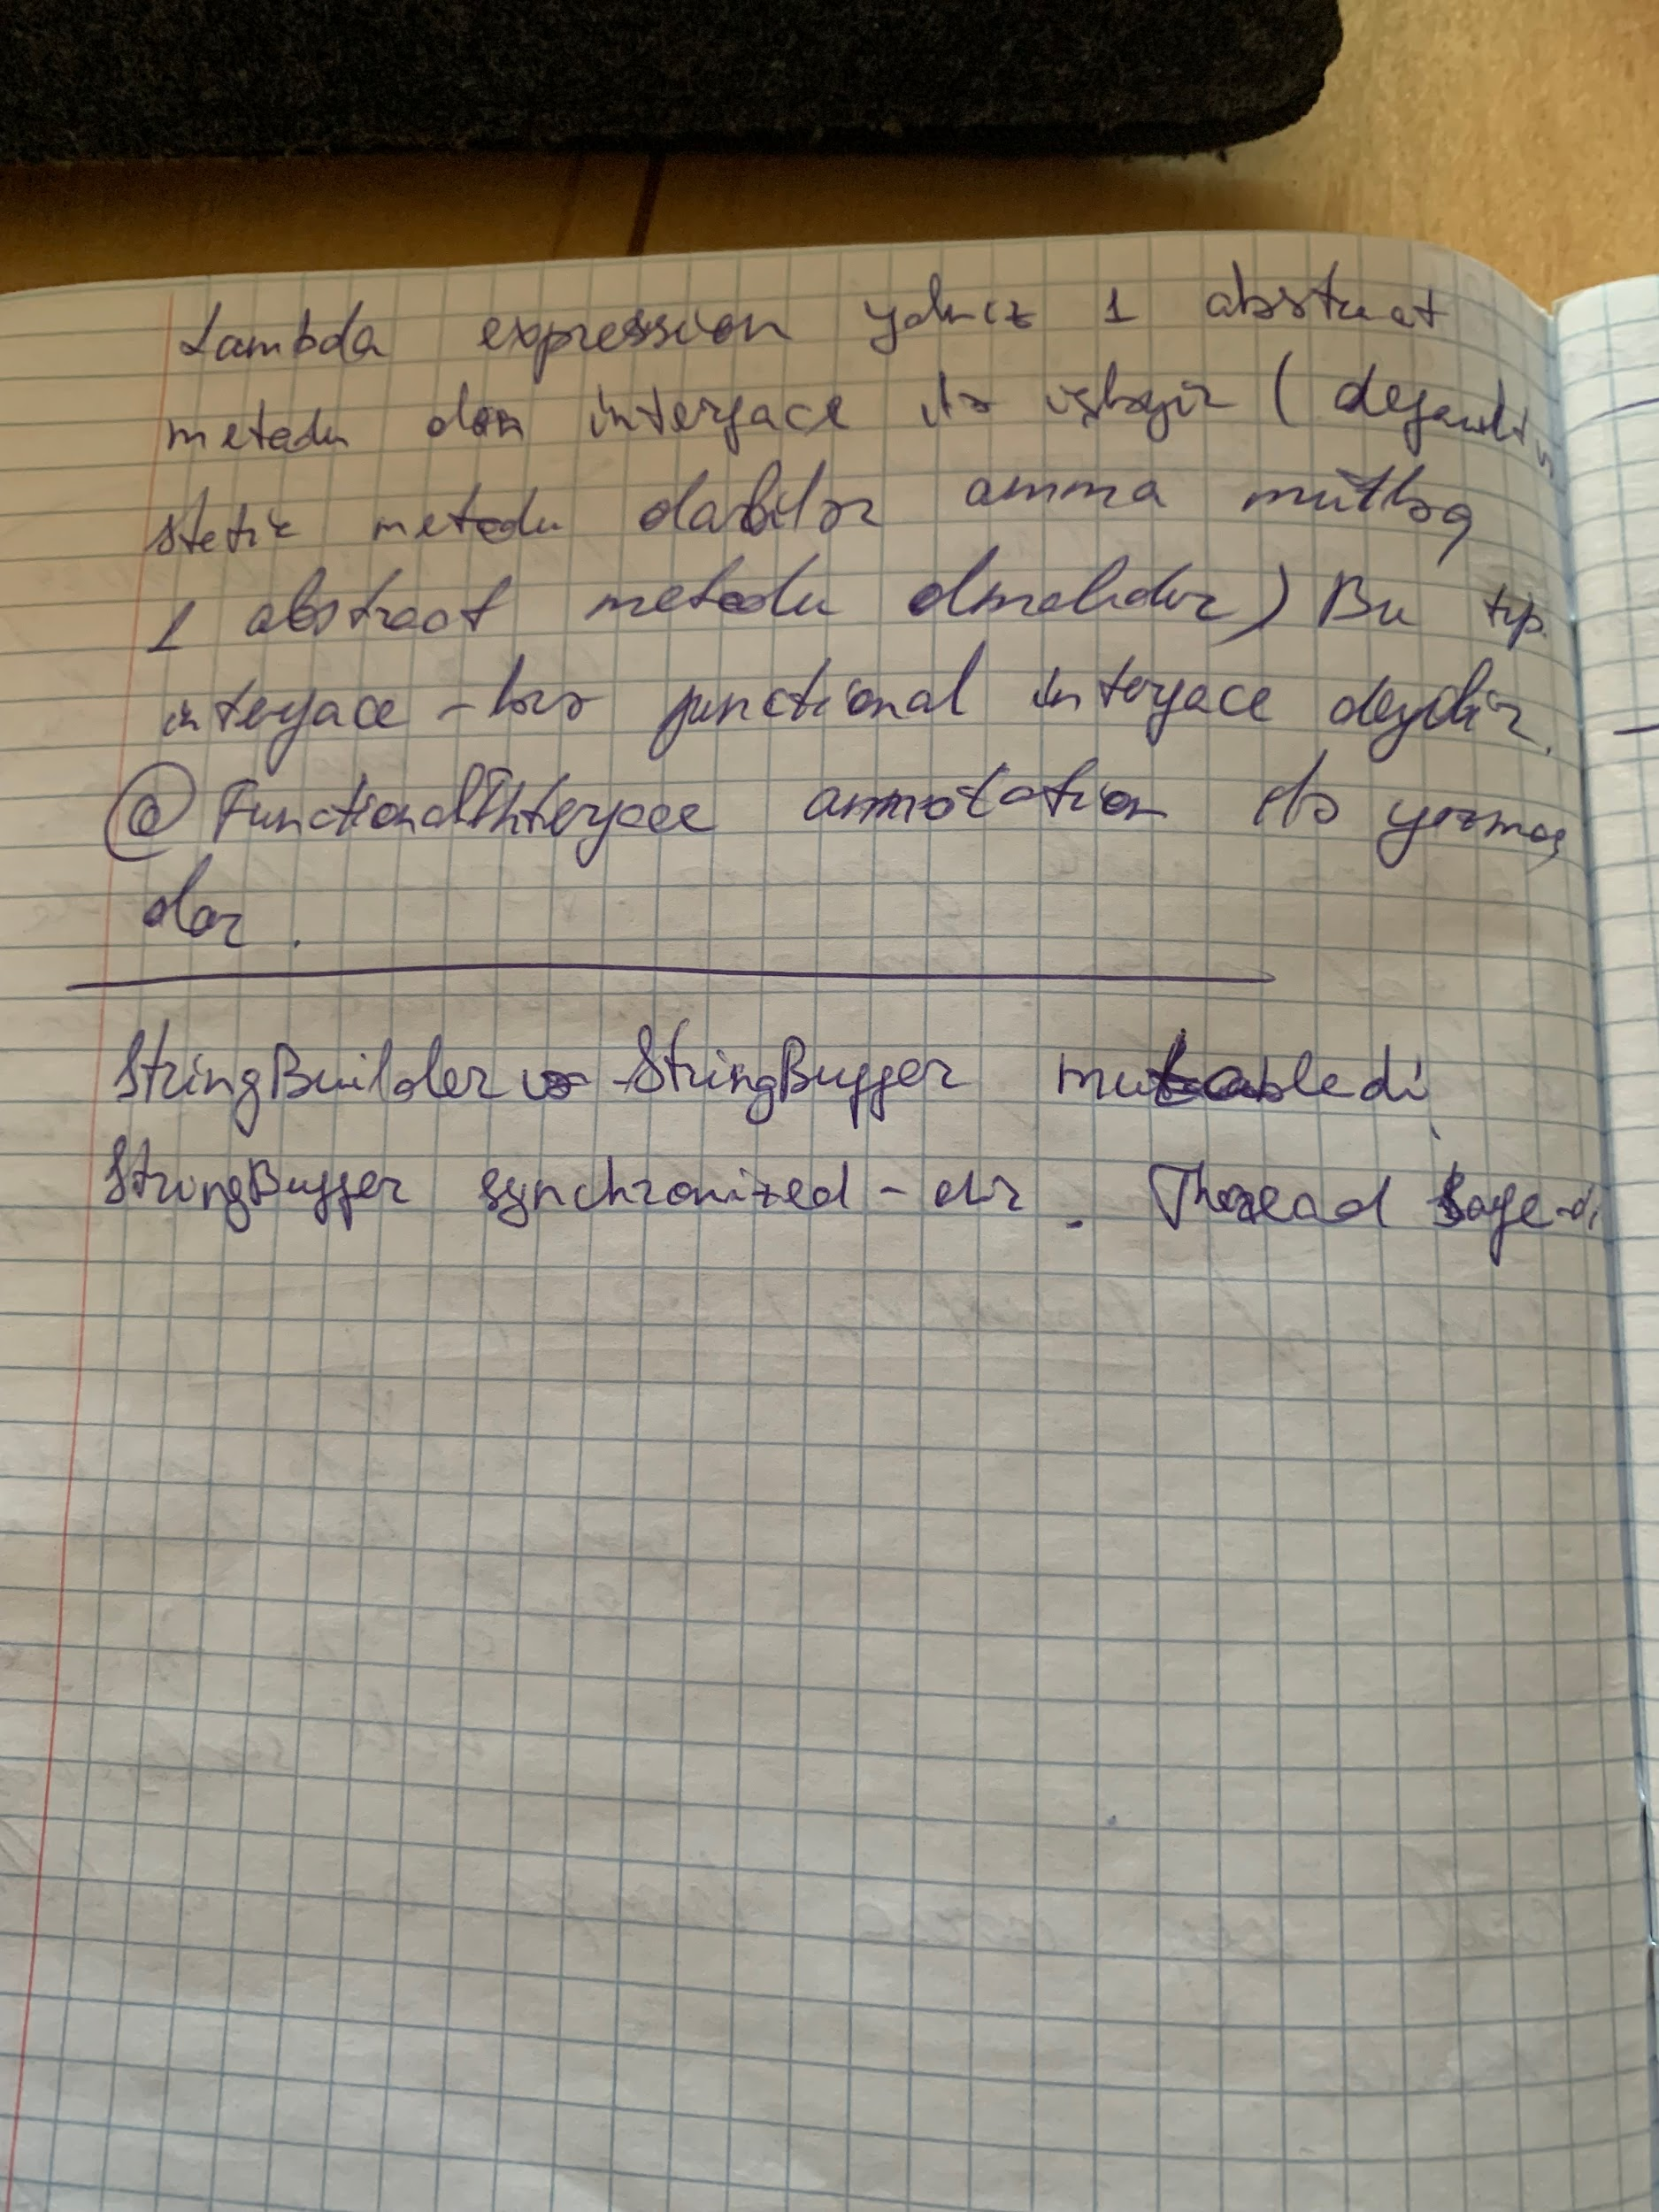 Lambda expression yalnız 1 abstract
metodu olan interface ilə işləyir (default və
static metodu ola bilər amma mütləq
1 abstract metodu olmalıdır) Bu tip
interface-lərə functional interface deyilir.
@FunctionalInterface annotation ilə yazmaq
olar.
StringBuilder və StringBuffer mutabledi
StringBuffer synchronized-dir. Thread safe-di